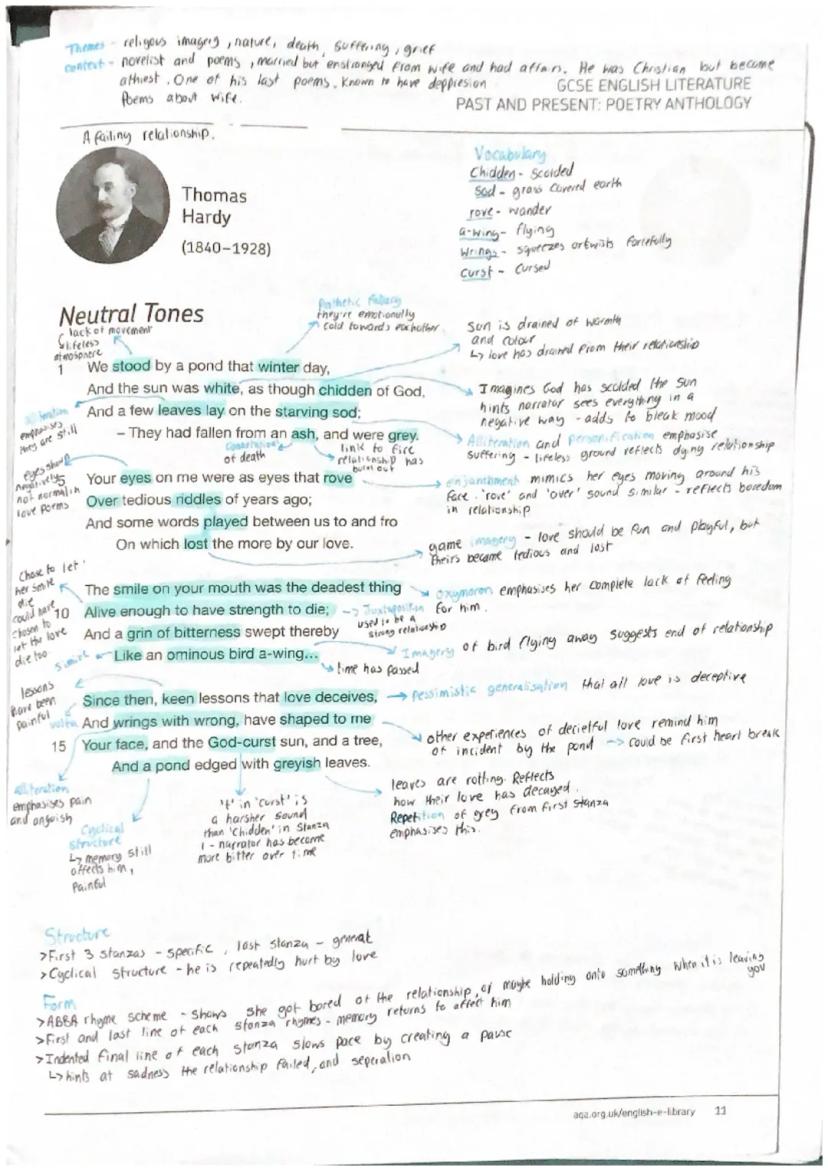 Themes - religous imagery, nature, death, suffering, grief
context - novelist and poems, married but enstranged from wife and had affairs. He was Christian but became
athiest. One of his last poems. Known to have deppresion
Poems about wife.
GCSE ENGLISH LITERATURE
PAST AND PRESENT: POETRY ANTHOLOGY
A failing relationship.
Thomas
Hardy
(1840–1928)
Vocabulary
Chidden - scolded
Sod - grass covered earth
rove - wander
a-wing - flying
Wrings - squeezes or twists forcefully
Curst - cursed
Neutral Tones
lack of movement
↳ lifeless
atmosphere
Pathetic fallacy
they're emotionally
cold towards eachother.
sun is drained of warmth
and colour
↳ love has drained from their relationship
1 We stood by a pond that winter day,
And the sun was white, as though chidden of God,
And a few leaves lay on the starving sod;
– They had fallen from an ash, and were grey.
Imagines God has scolded the sun
hints narrator sees everything in a
negative way - adds to bleak mood
alliteration
emphasises
they are still
Connotations
of death
link to fire
relationship has
burnt out
Alliteration and personification emphasise
suffering - lifeless ground reflects dying relationship
eyes show
negatively
not normal in
love poems
5 Your eyes on me were as eyes that rove
Over tedious riddles of years ago;
And some words played between us to and fro
On which lost the more by our love.
enjambment mimics her eyes moving around his
face. 'rove' and 'over' sound similar - reflects boredom
in relationship
game imagery - love should be fun and playful, but
theirs became tedious and lost
Chose to let
her smile
die
could have
chosen to
let the love
die too
The smile on your mouth was the deadest thing
10 Alive enough to have strength to die;
And a grin of bitterness swept thereby
Like an ominous bird a-wing...
oxymoron emphasises her complete lack of feeling
for him.
→ Juxtaposition
used to be a
strong relationship
Simile
Imagery of bird flying away suggests end of relationship
time has passed
lessons
have been
painful
volta
Since then, keen lessons that love deceives,
And wrings with wrong, have shaped to me
15 Your face, and the God-curst sun, and a tree,
And a pond edged with greyish leaves.
→ Pessimistic generalisation that all love is deceptive
other experiences of decietful love remind him
of incident by the pond → could be first heart break
alliteration
emphasises pain
and anguish
Cyclical
structure
↳ memory still
affects him,
painful
't' in 'curst' is
a harsher sound
than 'chidden' in stanza
1 - narrator has become
more bitter over time
leaves are rotting. Reflects
how their love has decayed.
Repetition of grey from first stanza
emphasises this.
Structure
>First 3 stanzas - specific, last stanza - general
>Cyclical structure - he is repeatedly hurt by love
Form
>ABBA rhyme scheme - shows she got bored of the relationship, or maybe holding onto something when it is leaving
you
>First and last line of each stanza rhymes - memory returns to affect him
>Indented final line of each stanza slows pace by creating a pause
↳ hints at sadness the relationship failed, and seperation
aqa.org.uk/english-e-library 11